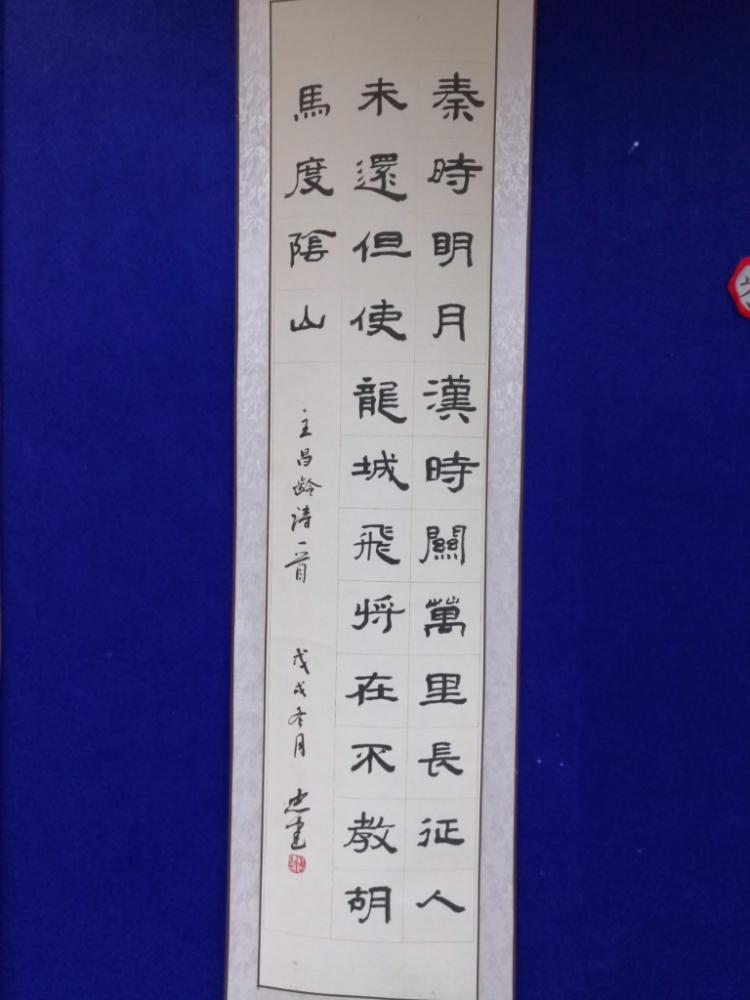 秦時明月漢時關萬里長征人
未還但使龍城飛将在不教胡
馬度陰山
王昌齡詩一首 戊戌冬月 忠建